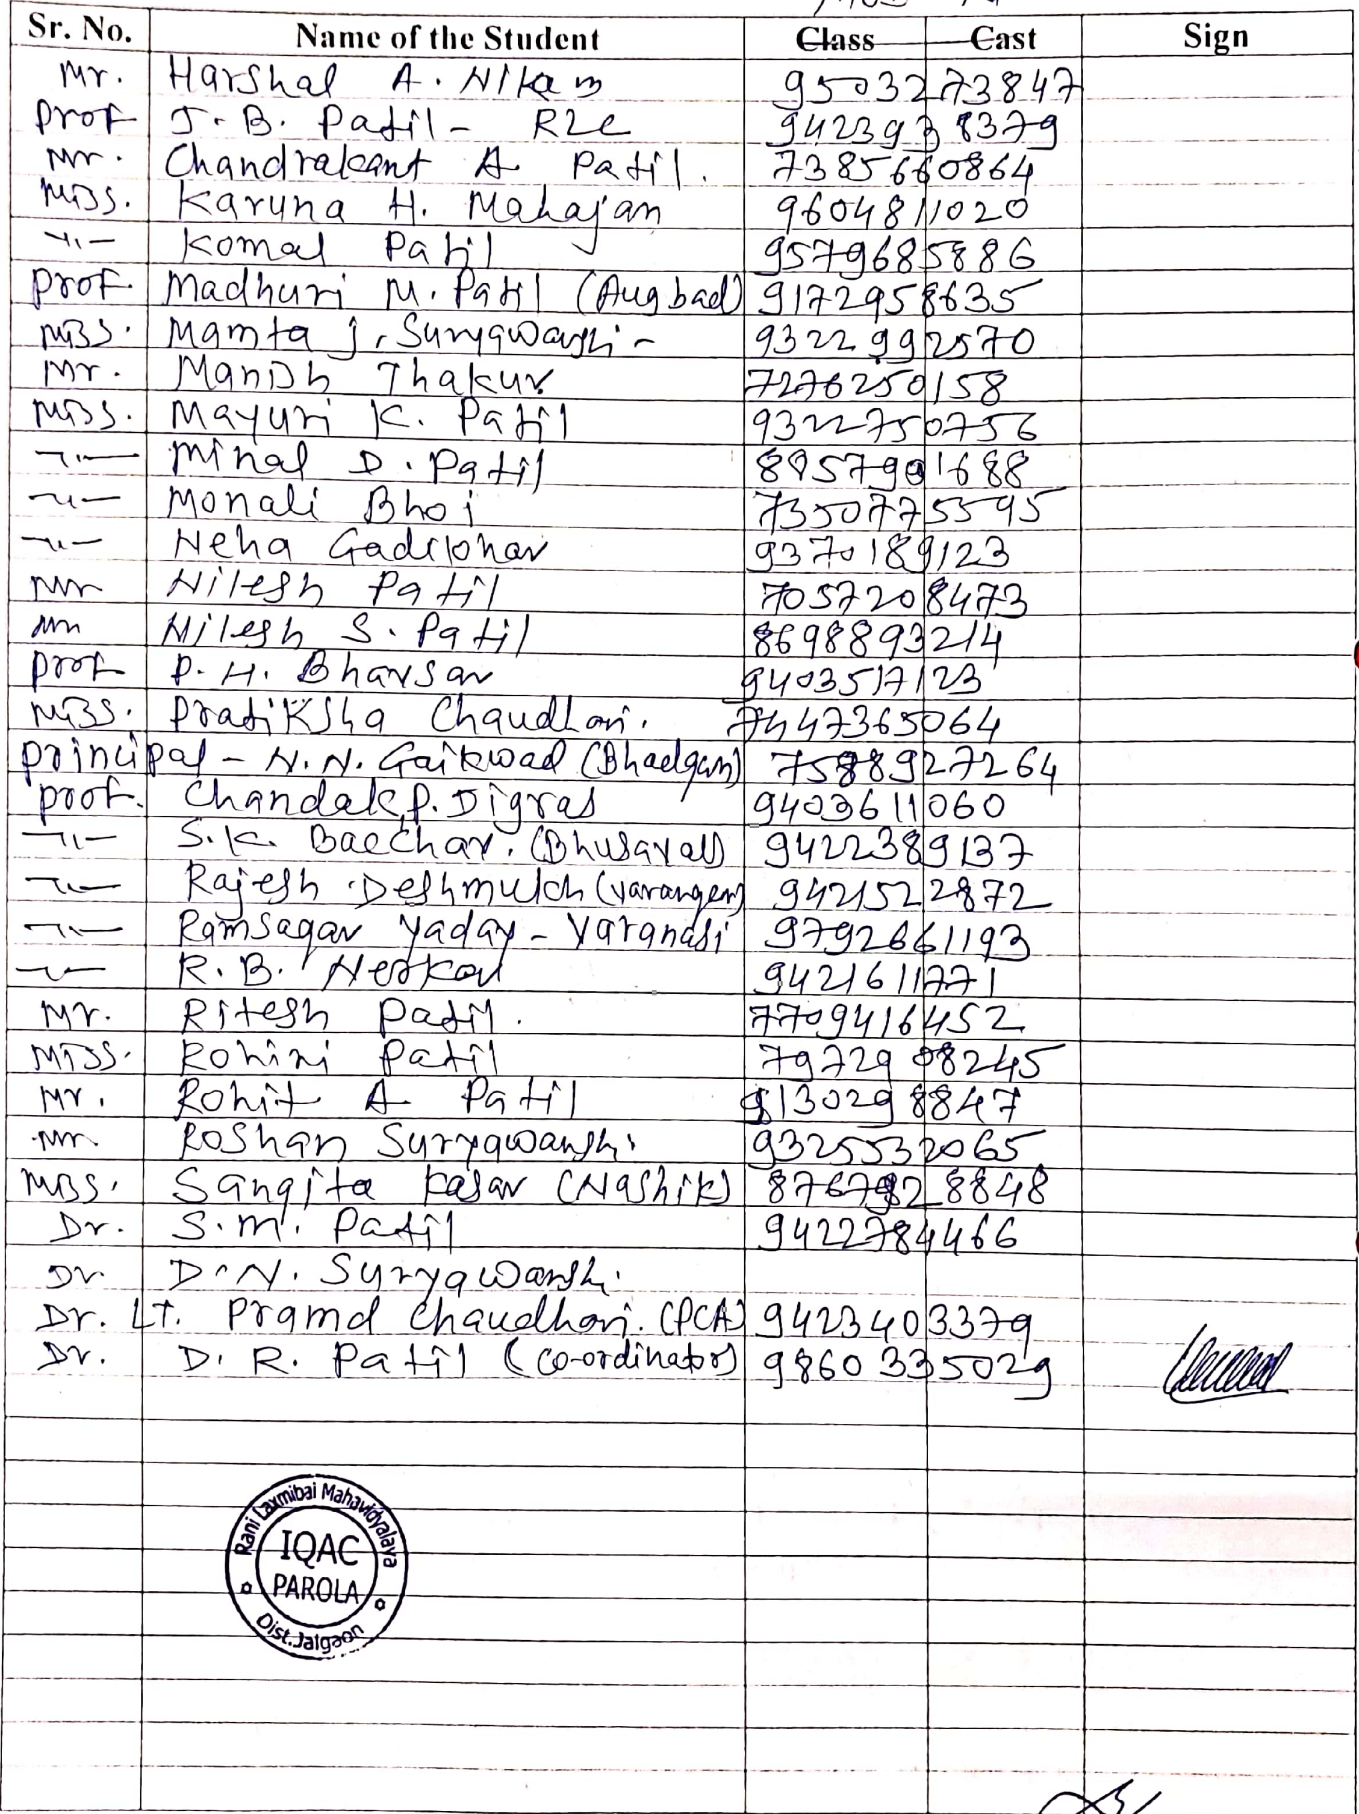 Sr. No. Name of the Student Class Cast Sign
Mr. Harshal A. Nikam 9503273847
Prof J. B. Patil - 9423938379
Mr. Chandrakant A. Patil. 7385660864
Miss. Karuna H. Mahajan 9604811020
-11- Komal Patil 9579685886
Prof. Madhuri M. Patil (Augbad) 9172958635
Miss. Mamta J. Suryawanshi - 9322992570
Mr. Manish Thakur 7276250158
Miss. Mayuri K. Patil 9322750756
-11- Minal D. Patil 8957901688
-11- Monali Bhoi 7350775595
-11- Neha 9370189123
Mr Nilesh Patil 7057208473
Mr Nilesh S. Patil 8698893214
Prof P. H. Bhavsar 9403517123
Miss. Pratiksha Chaudhari. 7447365064
Principal - N. N. Gaikwad (Bhadgaon) 7588927264
Prof. Chandak P. Digras 9403611060
-11- S. K. (Bhusaval) 9422389137
-11- Rajesh Deshmukh 9421522872
-11- Ramsagar Yadav - Varanasi 9792661193
-11- R. B. Nerkar 9421611771
Mr. Ritesh Patil. 7709416452
Miss. Rohini Patil 7972908245
Mr. Rohit A Patil 9130298847
Mr. Roshan Suryawanshi 9325532065
Miss. Sangita Kasar (Nashik) 8767928848
Dr. S. M. Patil 9422784466
Dr. D. N. Suryawanshi.
Dr. LT. Pramod Chaudhari. (PCA) 9423403379
Dr. D. R. Patil (Co-ordinator) 9860335029
Rani Laxmibai Mahavidyalaya
IQAC
PAROLA
Dist. Jalgaon